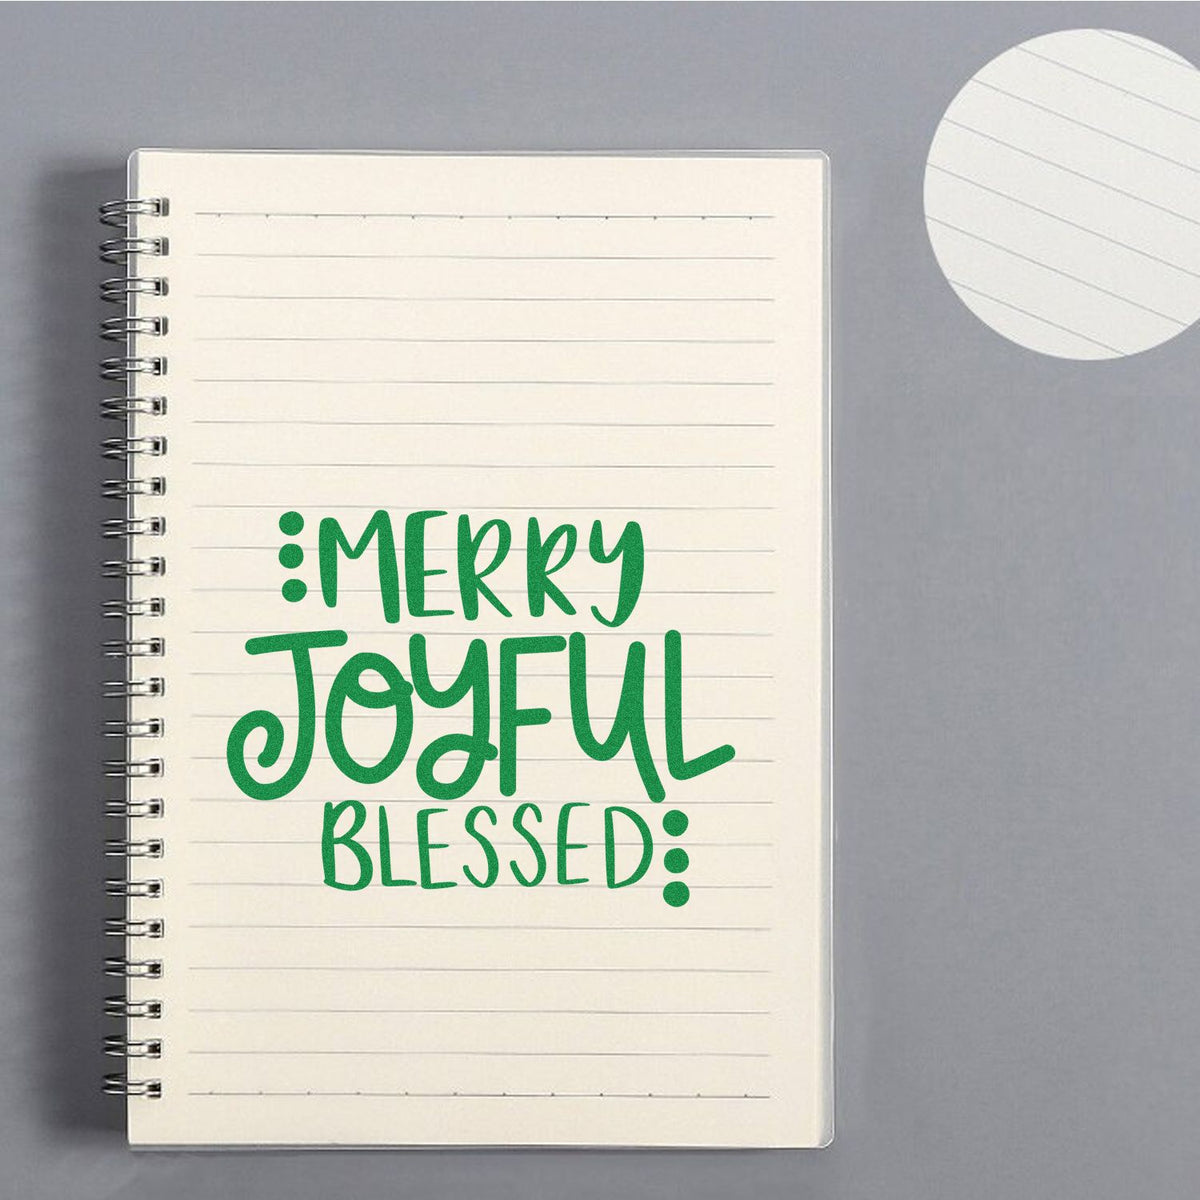 MERRY
JOYFUL
BLESSED